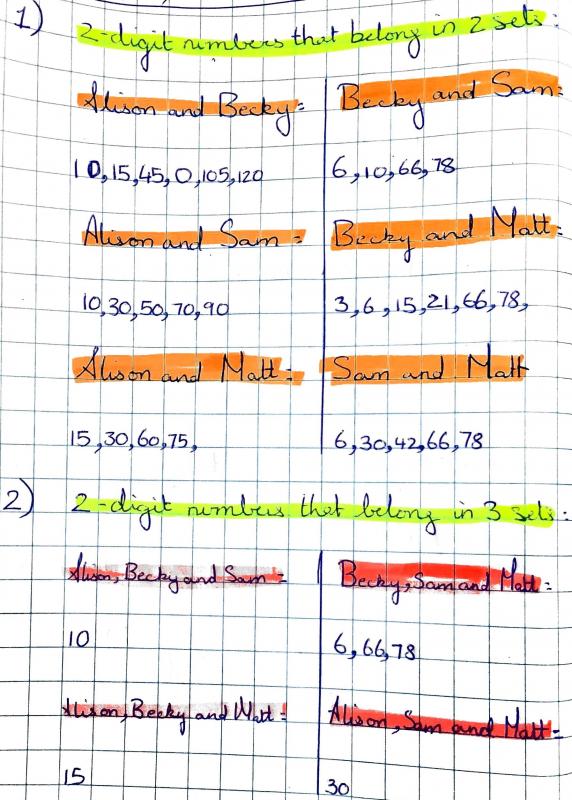 1) 2-digit numbers that belong in 2 sets:
Alison and Becky=
Becky and Sam=
10,15,45,0,105,120
6,10,66,78
Alison and Sam=
Becky and Matt=
10,30,50,70,90
3,6,15,21,66,78,
Alison and Matt=
Sam and Matt
15,30,60,75,
6,30,42,66,78
2) 2-digit numbers that belong in 3 sets:
Alison, Becky and Sam=
Becky, Sam and Matt=
10
6,66,78
Alison, Becky and Matt=
Alison, Sam and Matt=
15
30